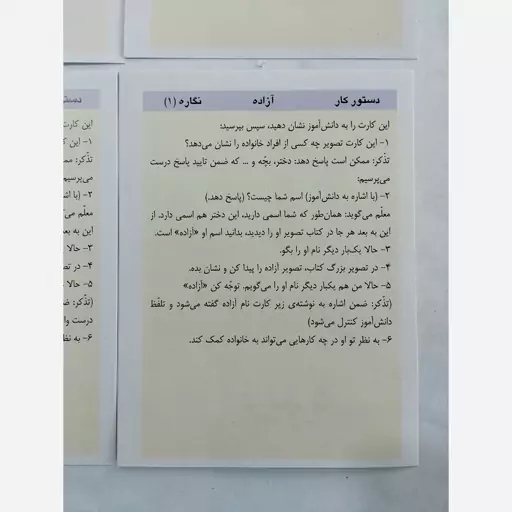 دستور کار آزاده نگاره (۱)
این کارت را به دانش‌آموز نشان دهید، سپس بپرسید:
۱- این کارت تصویر چه کسی از افراد خانواده را نشان می‌دهد؟
تذکر: ممکن است پاسخ دهد: دختر، بچّه و ... که ضمن تایید پاسخ درست
می‌پرسیم:
۲- (با اشاره به دانش‌آموز) اسم شما چیست؟ (پاسخ دهد.)
معلّم می‌گوید: همان‌طور که شما اسمی دارید، این دختر هم اسمی دارد. از
این به بعد هر جا در کتاب تصویر او را دیدید، بدانید اسم او «آزاده» است.
۳- حالا یک‌بار دیگر نام او را بگو.
۴- در تصویر بزرگ کتاب، تصویر آزاده را پیدا کن و نشان بده.
۵- حالا من هم یکبار دیگر نام او را می‌گویم. توجّه کن «آزاده»
(تذکر: ضمن اشاره به نوشته‌ی زیر کارت نام آزاده گفته می‌شود و تلفّظ
دانش‌آموز کنترل می‌شود)
۶- به نظر تو او در چه کارهایی می‌تواند به خانواده کمک کند.
این کارت
۱- این ک
تذکر: ممک
می‌پرسیم
۲- (با اشا
معلّم می‌گ
این به بعد
۳- حالا
۴- در تص
۵- حالا
(تذکر: ض
درست وا
۶- به نظ